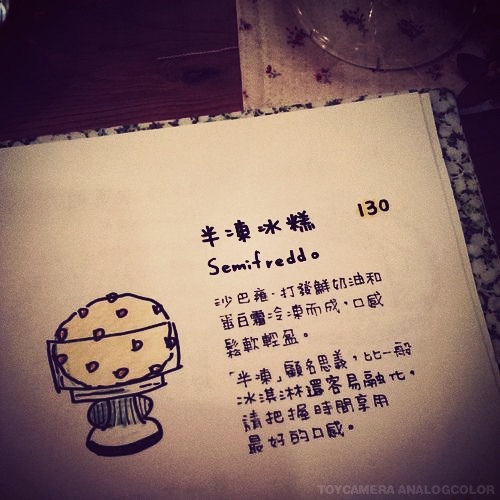 半凍冰糕 130
Semifreddo
沙巴雍,打發鮮奶油和
蛋白霜冷凍而成,口感
鬆軟輕盈。
「半凍」顧名思義,比一般
冰淇淋還容易融化,
請把握時間享用
最好的口感。
TOYCAMERA ANALOGCOLOR